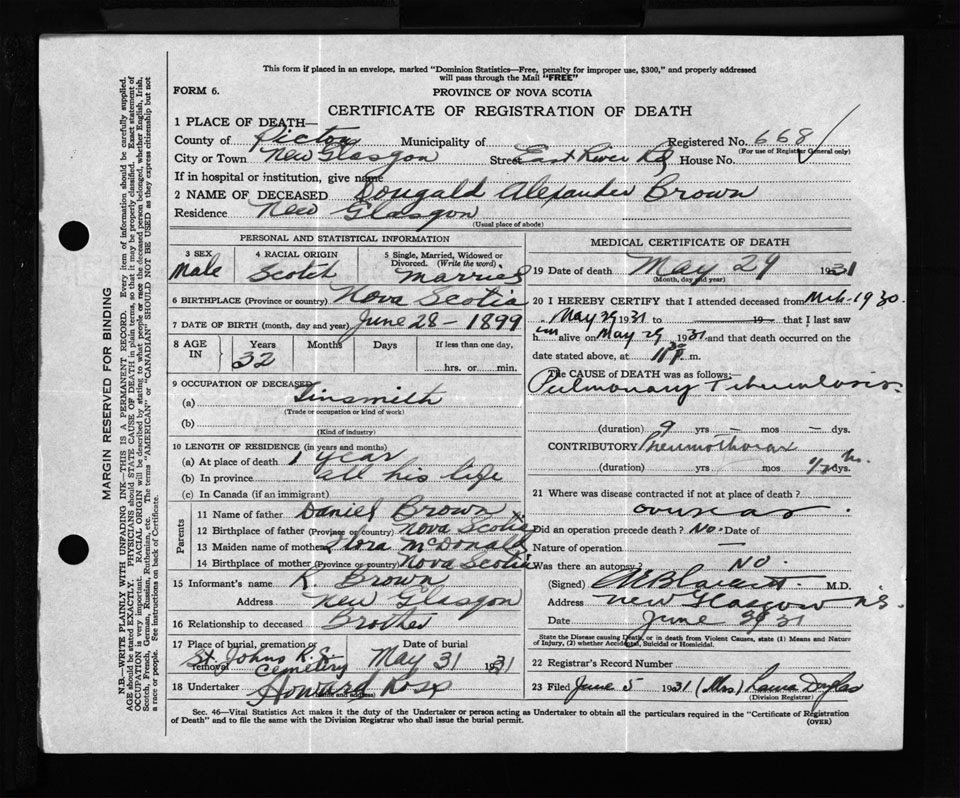 This form if placed in an envelope, marked "Dominion Statistics—Free, penalty for improper use, $300," and properly addressed
will pass through the Mail "FREE"
FORM 6.
PROVINCE OF NOVA SCOTIA
CERTIFICATE OF REGISTRATION OF DEATH
1 PLACE OF DEATH—
County of Pictou Municipality of Registered No. 668
(For use of Registrar General only)
City or Town New Glasgow Street East River Rd House No.
If in hospital or institution, give name
2 NAME OF DECEASED Dougald Alexander Brown
Residence New Glasgow
(Usual place of abode)
PERSONAL AND STATISTICAL INFORMATION
3 SEX 4 RACIAL ORIGIN 5 Single, Married, Widowed or
Divorced. (Write the word)
Male Scotch Married
6 BIRTHPLACE (Province or country) Nova Scotia
7 DATE OF BIRTH (month, day and year) June 28 - 1899
8 AGE IN Years Months Days If less than one day,
32 hrs. or min.
9 OCCUPATION OF DECEASED
(a) Tinsmith
(Trade or occupation or kind of work)
(b)
(Kind of industry)
10 LENGTH OF RESIDENCE (in years and months)
(a) At place of death 1 year
(b) In province all his life
(c) In Canada (if an immigrant)
Parents
11 Name of father Daniel Brown
12 Birthplace of father (Province or country) Nova Scotia
13 Maiden name of mother Flora McDonald
14 Birthplace of mother (Province or country) Nova Scotia
15 Informant's name K Brown
Address New Glasgow
16 Relationship to deceased Brother
17 Place of burial, cremation or removal Date of burial
St. Johns Cemetery May 31 1931
18 Undertaker Howard Ross
(Name and address)
MEDICAL CERTIFICATE OF DEATH
19 Date of death May 29 1931
(Month, day and year)
20 I HEREBY CERTIFY that I attended deceased from Mch. 1930.
May 29 1931 to 19 that I last saw
him alive on May 29, 1931 and that death occurred on the
date stated above, at 11 30 P. m.
The CAUSE OF DEATH was as follows:—
Pulmonary Tuberculosis
(duration) 9 yrs — mos — dys.
CONTRIBUTORY Pneumothorax
(duration) yrs mos 1/2 hr. dys.
21 Where was disease contracted if not at place of death?
overseas.
Did an operation precede death? No. Date of
Nature of operation —
Was there an autopsy? No.
(Signed) M.D.
Address New Glasgow N.S.
Date June 31
State the Disease causing Death, or in death from Violent Causes, state (1) Means and Nature
of Injury, (2) whether Accidental, Suicidal or Homicidal.
22 Registrar's Record Number
23 Filed June 5 1931 (Mrs) Laura Douglas
(Division Registrar)
Sec. 46—Vital Statistics Act makes it the duty of the Undertaker or person acting as Undertaker to obtain all the particulars required in the "Certificate of Registration
of Death" and to file the same with the Division Registrar who shall issue the burial permit.
(OVER)
MARGIN RESERVED FOR BINDING
N.B.—WRITE PLAINLY WITH UNFADING INK—THIS IS A PERMANENT RECORD. Every item of information should be carefully supplied.
AGE should be stated EXACTLY. PHYSICIANS should STATE CAUSE OF DEATH in plain terms, so that it may be properly classified. Exact statement of
OCCUPATION is very important. RACIAL ORIGIN will be described by stating to what people or race the deceased person belonged, whether English, Irish,
Scotch, French, German, Russian, Ruthenian, etc. The terms "AMERICAN" or "CANADIAN" SHOULD NOT BE USED as they express citizenship but not
a race or people. See instructions on back of Certificate.